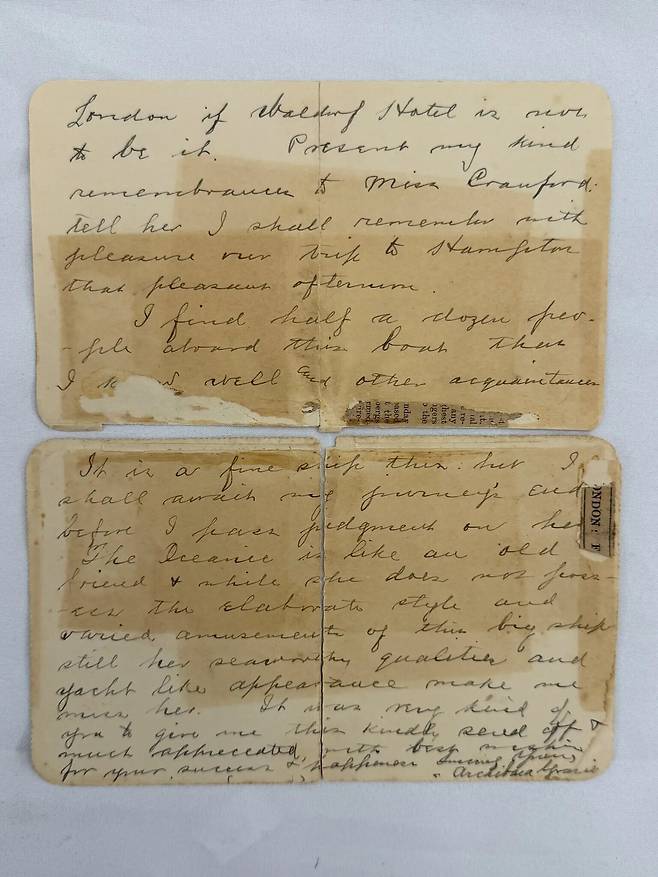 London if Waldorf Hotel is not
to be it. Present my kind
remembrances to Miss Crauford.
tell her I shall remember with
pleasure our trip to Hampton
that pleasant afternoon.
I find half a dozen peo-
-ple aboard this boat that
I well and other acquaintances
It is a fine ship this but I
shall await my journey's end
before I pass judgment on her
The Oceanic is like an old
friend & while she does not poss-
-ess the elaborate style and
varied amusements of this big ship
still her seaworthy qualities and
yacht like appearance make me
miss her. It was very kind of
you to give me this kindly send off &
much appreciated with best wishes
for your success & happiness
Archibald Gracie
ONDON: